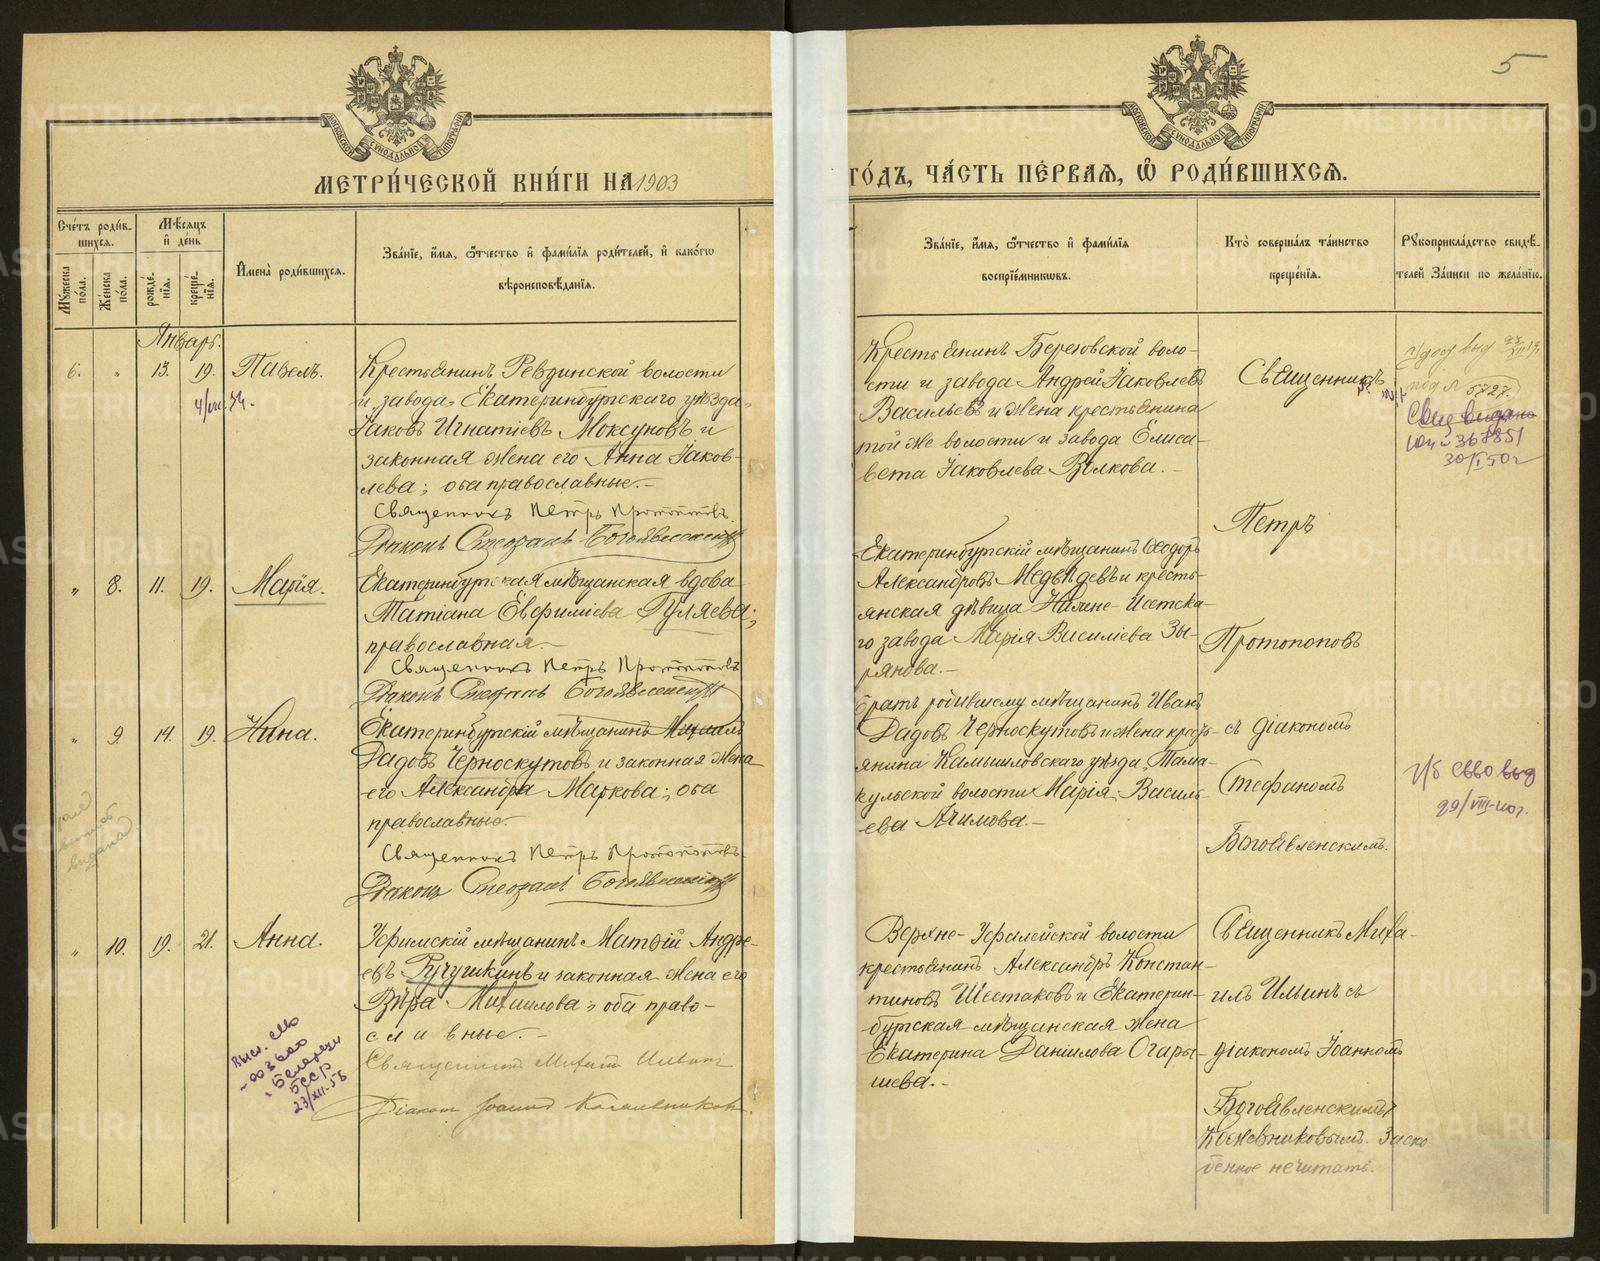 5
МОСКОВСКОЙ СѴНОДАЛЬНОЙ ТИПОГРАФІИ
МОСКОВСКОЙ СѴНОДАЛЬНОЙ ТИПОГРАФІИ
МЕТРИ́ЧЕСКОЙ КНИ́ГИ НА 1903
ГО́ДЪ, ЧА́СТЬ ПЕ́РВАѦ, Ѡ҆ РОДИ́ВШИХСѦ.
Сче́тъ роди́в-
шихсѧ.
Мꙋ́жеска по́ла.
Же́нска по́ла.
Мѣ́сѧцъ
и҆ де́нь
рожде́-
нїѧ.
креще́-
нїѧ.
И҆мена̀ роди́вшихсѧ.
Зва́нїе, и҆́мѧ, ѻ҆́тчество и҆ фами́лїѧ роди́телей, и҆ како́гѡ
вѣроисповѣ́данїѧ.
Зва́нїе, и҆́мѧ, ѻ҆́тчество и҆ фами́лїѧ
воспрїе́мникѡвъ.
Кто̀ соверша́лъ та́инство
креще́нїѧ.
Рꙋкоприкла́дство свидѣ́-
телей за́писи по жела́нїю.
Январь.
6. " 13. 19. Павелъ.
Крестьянинъ Ревдинской волости
и завода, Екатеринбургскаго уѣзда,
Іаковъ Игнатіевъ Моксуновъ и
законная жена его Анна Іаков-
лева; оба православные.-
Священникъ Петръ Протопоповъ.
Діаконъ Стефанъ Богоявленскій
Крестьянинъ Березовской воло-
сти и завода Андрей Іаковлевъ
Васильевъ и жена крестьянина
той же волости и завода Елиса-
вета Іаковлева Волкова.-
Священникъ
Петръ
Протопоповъ
съ діакономъ
Стефаномъ
Богоявленскимъ.
под № 5727.
Свид выдано
367851
30/I 50г
" 8. 11. 19. Марія.
Екатеринбургская мѣщанская вдова
Татіана Евфиміева Гуляева;
православная.-
Священникъ Петръ Протопоповъ
Діаконъ Стефанъ Богоявленскій
Екатеринбургскій мѣщанинъ Ѳеодоръ
Александровъ Медвѣдевъ и кресть-
янская дѣвица Нижне-Исетска-
го завода Марія Василіева Зы-
рянова.-
" 9. 14. 19. Нина.
Екатеринбургскій мѣщанинъ Михаилъ
Дадовъ Черноскутовъ и законная жена
его Александра Маркова; оба
православные.-
Священникъ Петръ Протопоповъ.
Діаконъ Стефанъ Богоявленскій
братъ родившему мѣщанинъ Иванъ
Дадовъ Черноскутовъ и жена кресть-
янина Камышловскаго уѣзда, Тама-
кульской волости Марія Василь-
ева Ачимова.-
29/VIII-40г.
" 10. 19. 21. Анна.
Уфимскій мѣщанинъ Матѳій Андре-
евъ Ручушкинъ и законная жена его
Вѣра Михаилова; оба право-
славные.-
Священникъ Михаилъ Ильинъ
Діаконъ Іоаннъ Кожевниковъ.
Верхне-Уфалейской волости
крестьянинъ Александръ Констан-
тиновъ Шестаковъ и Екатерин-
бургская мѣщанская жена
Екатерина Даніилова Огары-
шева.-
Священникъ Миха-
илъ Ильинъ съ
діакономъ Іоанномъ
Богоявленскимъ
Кожевниковымъ. Заско-
бенное нечитать.
БССР
23/XII-58